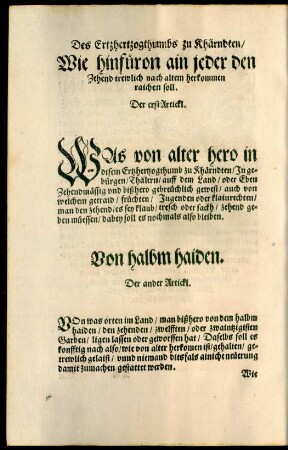 Des Ertzhertzogthumbs zu Khärndten/
Wie hinfüron ain jeder den
Zehend trewlich nach altem herkommen
raichen soll.
Der erst Artickl.
WAs von alter hero in
disem Ertzhertzogthumb zu Khärndten/ In ge-
bürgen/ Thälern/ auff dem Land/ oder Eben
Zehendmässig vnd bißhero gebreüchlich gewest/ auch von
welchem getraid/ früchten/ Jugenden oder klainrechten/
man den zehend/ es sey klaub/ tresch oder sackh/ zehend ge-
ben müessen/ dabey soll es nochmals also bleiben.
Von halbm haiden.
Der ander Artickl.
VOn was orten im Land/ man bißhero von dem halbm
haiden/ den zehenden/ zwelfften/ oder zwaintzigisten
Garben/ ligen lassen oder geworffen hat/ Daselbs soll es
konfftig nach also/ wie von alter herkomen ist/ gehalten/ ge-
trewlich gelaist/ vnnd niemand ditsfals ainiche neüerung
damit zumachen gestattet werden.
Wie